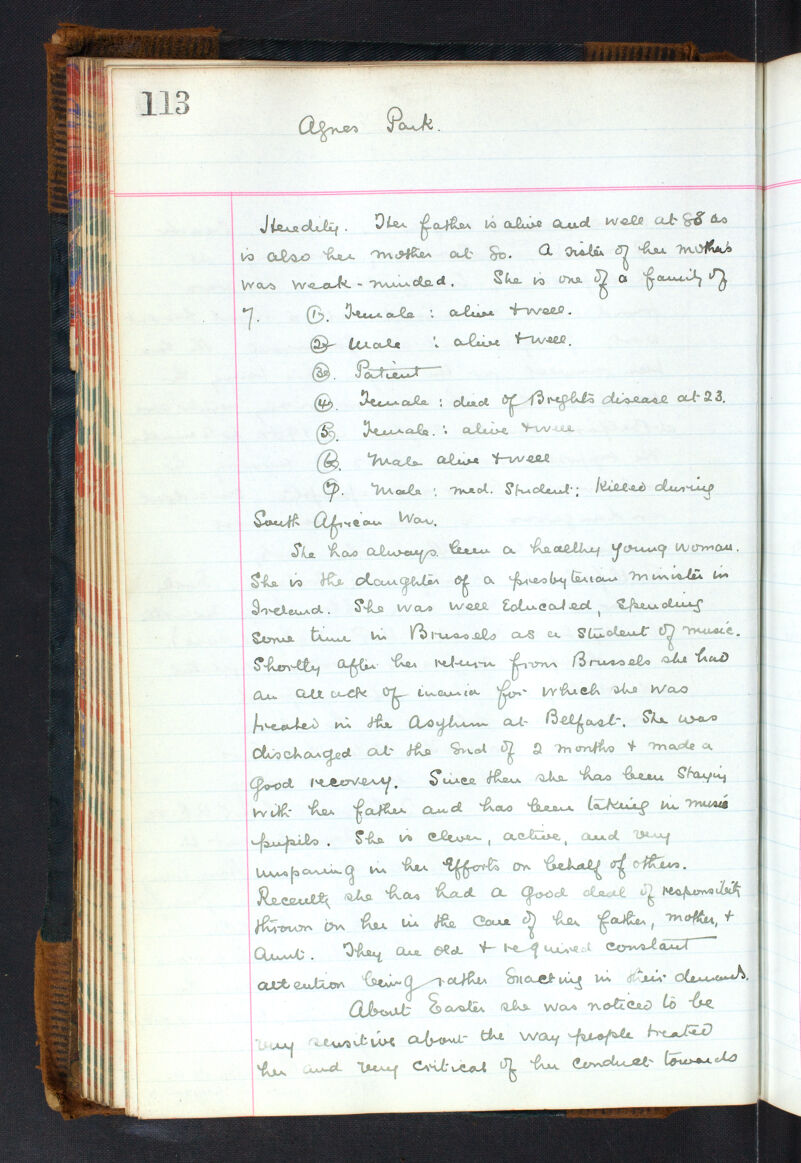 113
Agnes Park.
Heredity. Her father is alive and well at 88 as
is also her mother at 80. A sister of her mothers
was weak-minded. She is one of a family of
7. (1). Female : alive + well.
(2) Male : alive + well.
(3). Patient
(4). Female : died of Brights disease at 23.
(5). Female. : alive + well
(6). Male alive + well
(7). Male : med. Student ; Killed during
South African War.
She has always been a healthy young woman.
She is the daughter of a presbyterian minister in
Ireland. She was well Educated, spending
some time in Brussels as a student of music.
Shortly after her return from Brussels she had
an attack of mania for which she was
treated in the Asylum at Belfast. She was
discharged at the End of 2 months + made a
good recovery. Since then she has been staying
with her father and has been taking in music
pupils. She is clever, active, and very
unsparing in her Efforts on behalf of others.
Recently she has had a good deal of responsibility
thrown on her in the care of her father, mother, +
Aunt. They are old + required constant
attention being rather Exacting in their demands.
About Easter she was noticed to be
very sensitive about the way people treated
her and very critical of her conduct towards